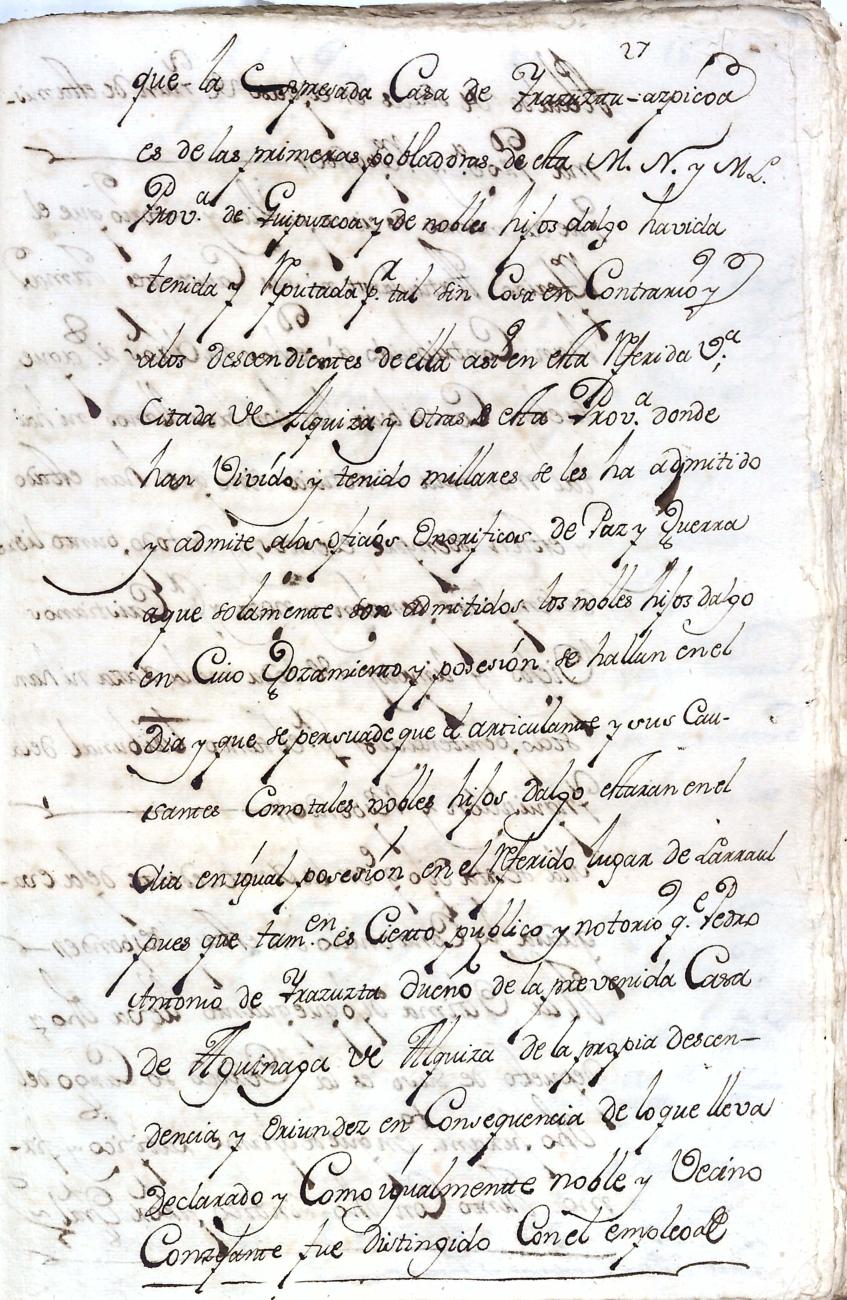 27
que la Espresada Casa de Yrazuzta=azpicoa
es de las primeras pobladoras de esta M. N. y M L.
Prov.a de Guipuzcoa y de nobles hijos dalgo havida
tenida y Reputada p.r tal sin Cosa en Contrario y
alos descendientes de ella asi en esta Referida V.a
Citada de Alquiza y otras de esta Prov.a donde
han Vivido y tenido millares se les ha admitido
y admite alos oficios Onorificos de Paz y Guerra
aque solamentte son admitidos los nobles hijos dalgo
en Cuio Gozamiento y posesión se hallan en el
Dia y que se persuade que el articulante y sus Cau-
santes Como tales nobles hijos dalgo estaran en el
dia en igual posesión en el Referido lugar de Larraul
pues que tam.en es Cierto publico y notorio q.e Pedro
Antonio de Yrazuzta dueño de la prevenida Casa
de Aguinaga de Alquiza de la propia descen-
dencia y Oriundez en Consequencia de lo que lleva
Declarado y Como igualmentte noble y Vecino
Conzejante fue distinguido Con el empleo de